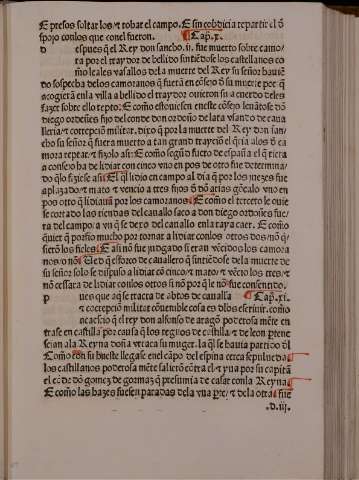 E presos soltar los ⁊ robar el campo. E sin cobdicia repartir el d̄
spojo con los que con el fueron. Cap̄. x.
d espues q̄l Rey don sancho .ii. fue muerto sobre camo/
ra por el traydor de bellido sintiēdose los castellanos co
mo leales vasallos dela muerte del Rey su señor hauiē
do sospecha delos camoranos q̄ fuerā en cōsejo d̄ su muerte por q̄
acogierā en la villa a bellido el traydor ouieron su acuerdo deles
fazer sobre ello repto. E como estouiesen en este cōsejo leuātose dō
diego ordoñes fijo del conde don ordoño de lara vsando de caua
lleria ⁊ correpciō militar. dixo q̄ por la muerte del Rey don san/
cho su señor q̄ fuera muerto a tan grand trayciō el q̄ria a los d̄ ca
mora reptar. ⁊ fizolo asi. E como segūd fuero de españa el q̄ riepta
a consejo ha de lidiar con cinco vno en pos de otro fue determina/
do q̄lo fiziese asi. El q̄l lidio en campo al dia q̄ por los juezes fue
aplazado ⁊ mato ⁊ vencio a tres fijos d̄ dō arias gōçalo vno en
pos otro q̄ lidiauā por los camoranos. E como el tercero le ouie
se cortado las riendas del cauallo saco a don diego ordoñes fue/
ra del campo. a vn q̄ se dexo del cauallo en la raya caer. E como
quier q̄ porfio mucho por tornar a lidiar con los otros dos no q̄
sierō los fieles. E asi no fue judgado si eran vēcidos los camora
nos o nō. Ued q̄ esforço de cauallero q̄ sintiēdose dela muerte de
su señor solo se dispuso a lidiar cō cinco ⁊ mato ⁊ vēcio los tres ⁊
nō cessara de lidiar con los otros si nō por q̄ le nō fue consentido.
p ues que aq̄ se tracta de abtos de caualla Cap̄. xi.
⁊ correpciō militar cōuenible cosa es d̄los escriuir. como
acaescio q̄ el rey don alfonso de aragō poderosa mēte en
trase en castilla por causa q̄ los reynos de castilla ⁊ de leon ptene
scian ala Reyna doña vrraca su muger. la q̄l se hauia partido d̄l
Como con su hueste llegase en el cāpo del espina cerca sepulueda
los castellanos poderosa mēte salierō cōtra el ⁊ yua por su capitā
el cōde dō gomez de gormaz q̄ presumia de casar con la Reyna
E como las hazes fuesen paradas dela vna pte ⁊ dela otra fue
.d.iii.